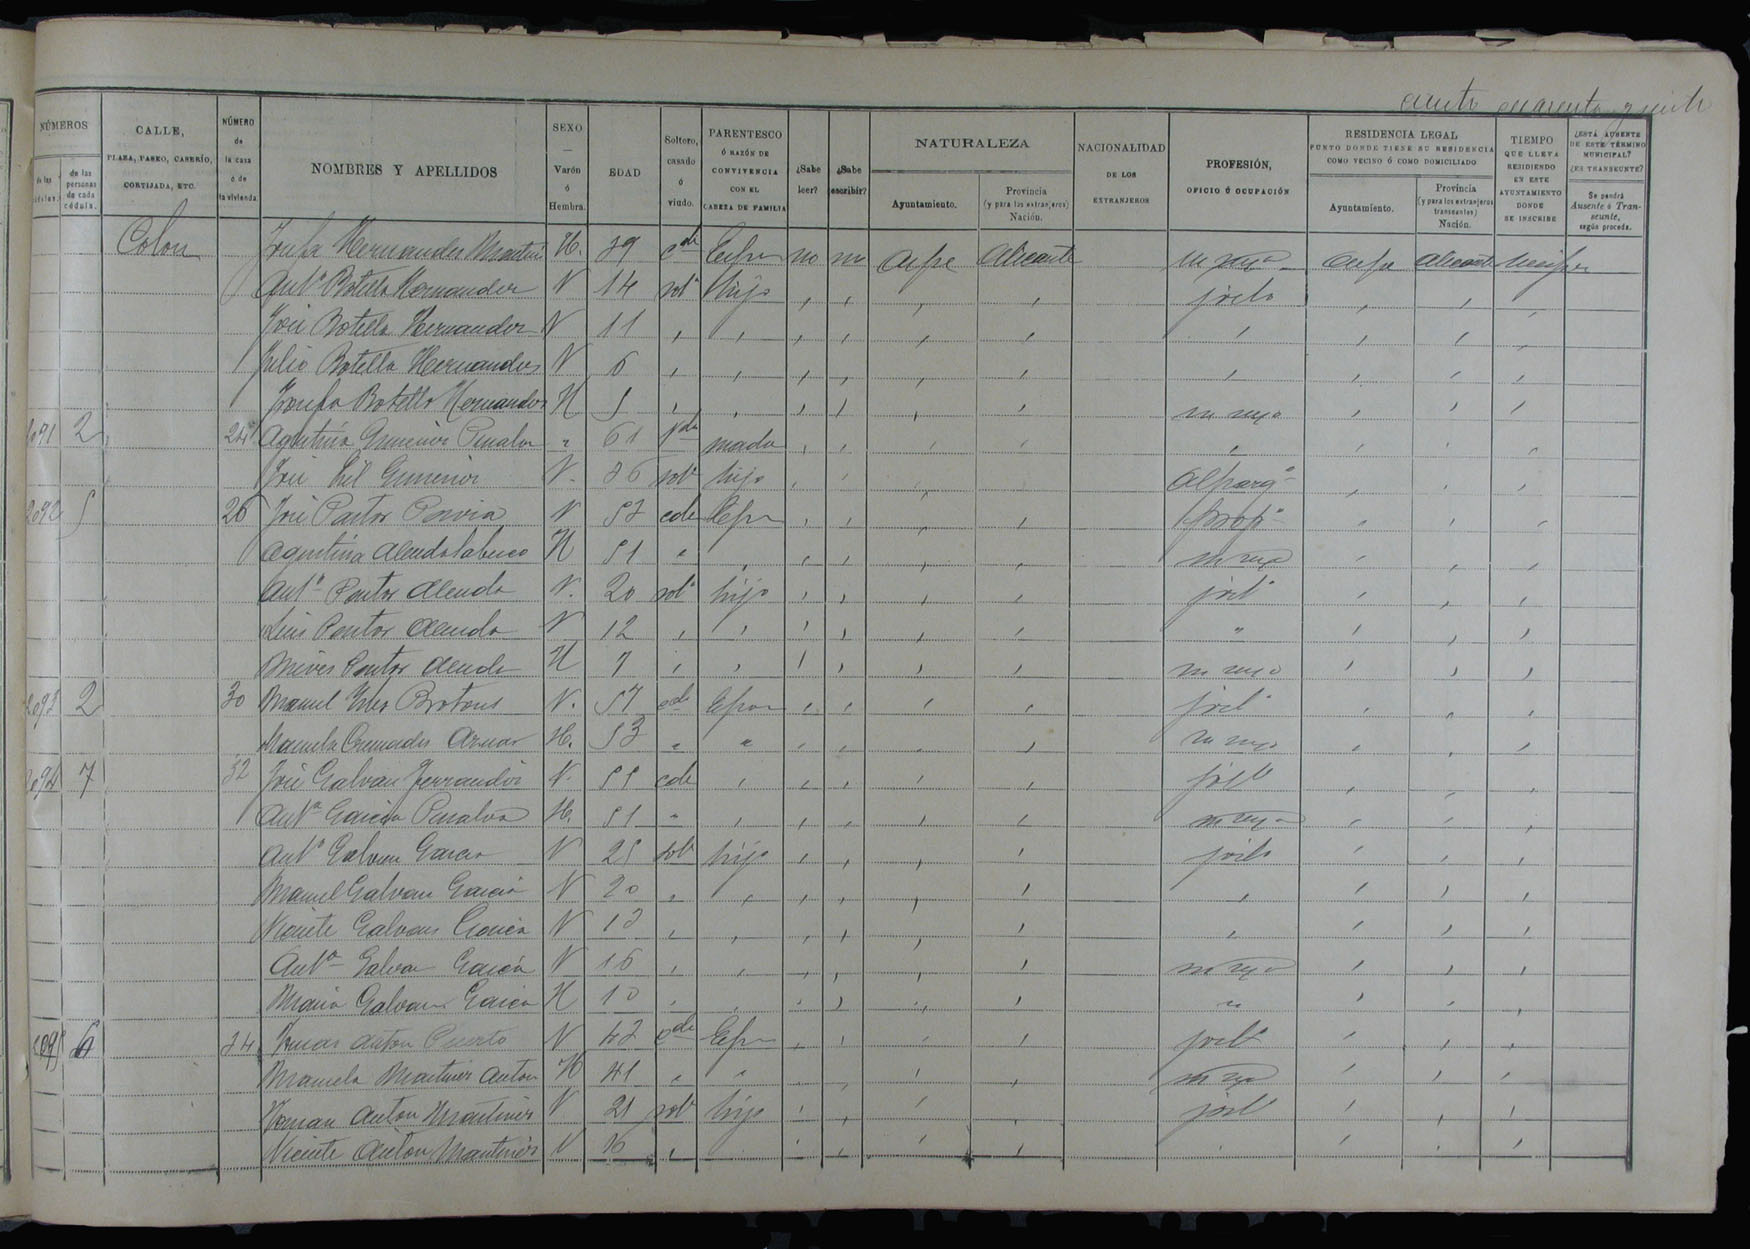 ciento cuarenta y siete
NÚMEROS
de las cédulas.
de las personas de cada cédula.
CALLE, PLAZA, PASEO, CASERÍO, CORTIJADA, ETC.
NÚMERO de la casa ó de la vivienda.
NOMBRES Y APELLIDOS
SEXO — Varón ó Hembra.
EDAD
Soltero, casado ó viudo.
PARENTESCO Ó RAZÓN DE CONVIVENCIA CON EL CABEZA DE FAMILIA
¿Sabe leer?
¿Sabe escribir?
NATURALEZA
Ayuntamiento.
Provincia (y para los extranjeros) Nación.
NACIONALIDAD DE LOS EXTRANJEROS
PROFESIÓN, OFICIO Ó OCUPACIÓN
RESIDENCIA LEGAL
PUNTO DONDE TIENE SU RESIDENCIA COMO VECINO Ó COMO DOMICILIADO
Ayuntamiento.
Provincia (y para los extranjeros transeuntes) Nación.
TIEMPO QUE LLEVA RESIDIENDO EN ESTE AYUNTAMIENTO DONDE SE INSCRIBE
¿ESTÁ AUSENTE DE ESTE TÉRMINO MUNICIPAL? ¿ES TRANSEUNTE?
Se pondrá Ausente ó Transeunte, según proceda.
Colon Josefa Hernandes Martin H. 39 cda Espa no no Aspe Alicante su sexo Aspe Alicante
Antº Botella Hernander V 14 solº hijo , , , , jorlo , , ,
José Botella Hernander V 11 , , , , , , , , , ,
Julio Botella Hernandes V 6 , , , , , , , , , ,
Josefa Botella Hernander H 5 , , , , , , su sexo , , ,
2091 2 24 Agustina Gimenez Penalva " 61 vda madre , , , , , , , ,
José Gil Gimenez V. 36 solº hijo , , , , Alpargº , , ,
2092 5 26 José Pastor V 53 cdo Espo , , , , Propº , , ,
Agustina Alenda H 51 " , , , , , su sexo , , ,
Antº Pastor Alenda V. 20 solº hijo , , , , jorlº , , ,
Luis Pastor Alenda V 12 , , , , , , " , , ,
Nieves Pastor Alenda H 7 , , , , , , su sexo , , ,
2093 2 30 Manuel Brotons V. 57 cdo Espo , , , , jorlº , , ,
Manuela Cremades Aznar H. 53 " " , , , , su sexo , , ,
2094 7 32 José Galvan Ferrandis V. 55 cdo , , , , , jorlº , , ,
Antª Garcia Penalva H. 51 " , , , , , su sexo , , ,
Antº Galvan Garcia V 25 solº hijo , , , , jorlo , , ,
Manuel Galvan Garcia V 20 , , , , , , , , , ,
Vicente Galvan Garcia V 13 , , , , , , , , , ,
Antª Galvan Garcia V 16 , , , , , , su sexo , , ,
Maria Galvan Garcia H 10 , , , , , , " , , ,
2095 6 34 Tomas Anton V 43 cdo Espo , , , , jorlº , , ,
Manuela Martinez Anton H 41 " " , , , , su sexo , , ,
Tomas Anton Martinez V 21 solº hijo , , , , jorlº , , ,
Vicente Anton Martinez V 16 , , , , , , , , ,